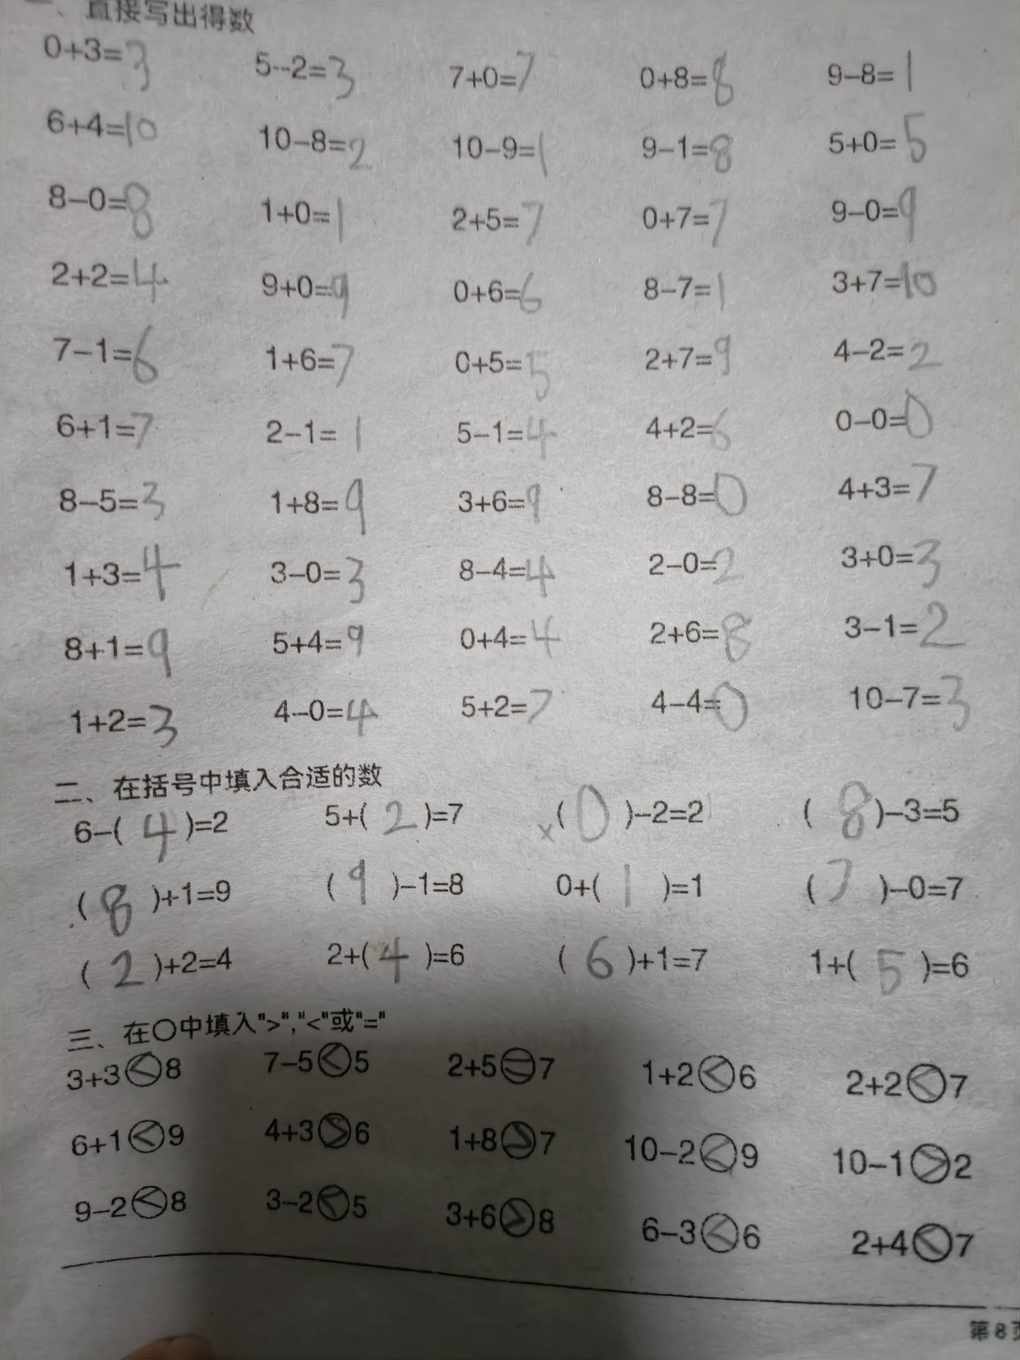 一、直接写出得数
0+3=3 5--2=3 7+0=7 0+8=8 9-8=1
6+4=10 10-8=2 10-9=1 9-1=8 5+0=5
8-0=8 1+0=1 2+5=7 0+7=7 9-0=9
2+2=4 9+0=9 0+6=6 8-7=1 3+7=10
7-1=6 1+6=7 0+5=5 2+7=9 4-2=2
6+1=7 2-1=1 5-1=4 4+2=6 0-0=0
8-5=3 1+8=9 3+6=9 8-8=0 4+3=7
1+3=4 3-0=3 8-4=4 2-0=2 3+0=3
8+1=9 5+4=9 0+4=4 2+6=8 3-1=2
1+2=3 4-0=4 5+2=7 4-4=0 10-7=3
二、在括号中填入合适的数
6-(4)=2 5+(2)=7 ×(0)-2=2 (8)-3=5
(8)+1=9 (9)-1=8 0+(1)=1 (7)-0=7
(2)+2=4 2+(4)=6 (6)+1=7 1+(5)=6
三、在○中填入">","<"或"="
3+3<8 7-5<5 2+5=7 1+2<6 2+2<7
6+1<9 4+3>6 1+8>7 10-2<9 10-1>2
9-2<8 3-2<5 3+6>8 6-3<6 2+4<7
第8页